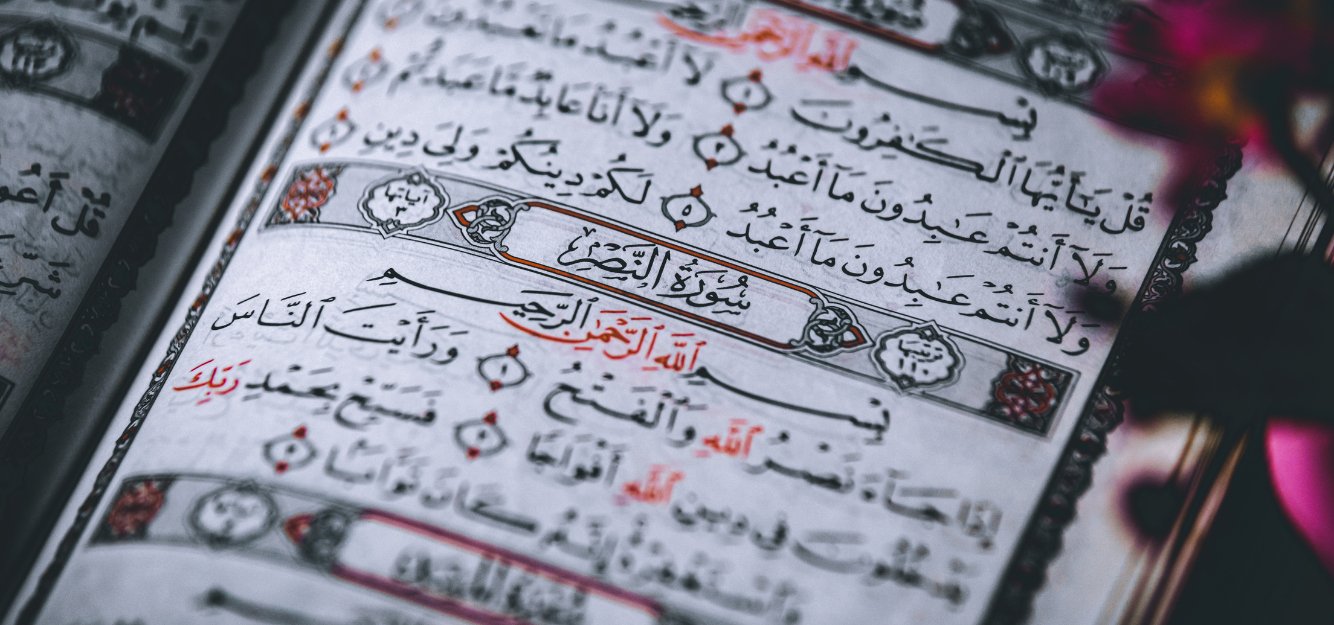 بِسْمِ ٱللَّهِ ٱلرَّحْمَٰنِ ٱلرَّحِيمِ
قُلْ يَـٰٓأَيُّهَا ٱلْكَـٰفِرُونَ ١ لَآ أَعْبُدُ مَا تَعْبُدُونَ
وَلَآ أَنتُمْ عَـٰبِدُونَ مَآ أَعْبُدُ ٣ وَلَآ أَنَا۠ عَابِدٌ مَّا عَبَدتُّمْ
وَلَآ أَنتُمْ عَـٰبِدُونَ مَآ أَعْبُدُ ٥ لَكُمْ دِينُكُمْ وَلِىَ دِينِ
آياتها ٣ سُورَةُ النَّصْرِ ترتيبها ١١٠
بِسْمِ ٱللَّهِ ٱلرَّحْمَٰنِ ٱلرَّحِيمِ
إِذَا جَآءَ نَصْرُ ٱللَّهِ وَٱلْفَتْحُ ١ وَرَأَيْتَ ٱلنَّاسَ
يَدْخُلُونَ فِى دِينِ ٱللَّهِ أَفْوَاجًا ٢ فَسَبِّحْ بِحَمْدِ رَبِّكَ
وَٱسْتَغْفِرْهُ إِنَّهُۥ كَانَ تَوَّابًۢا ٣
قُلْ أَعُو